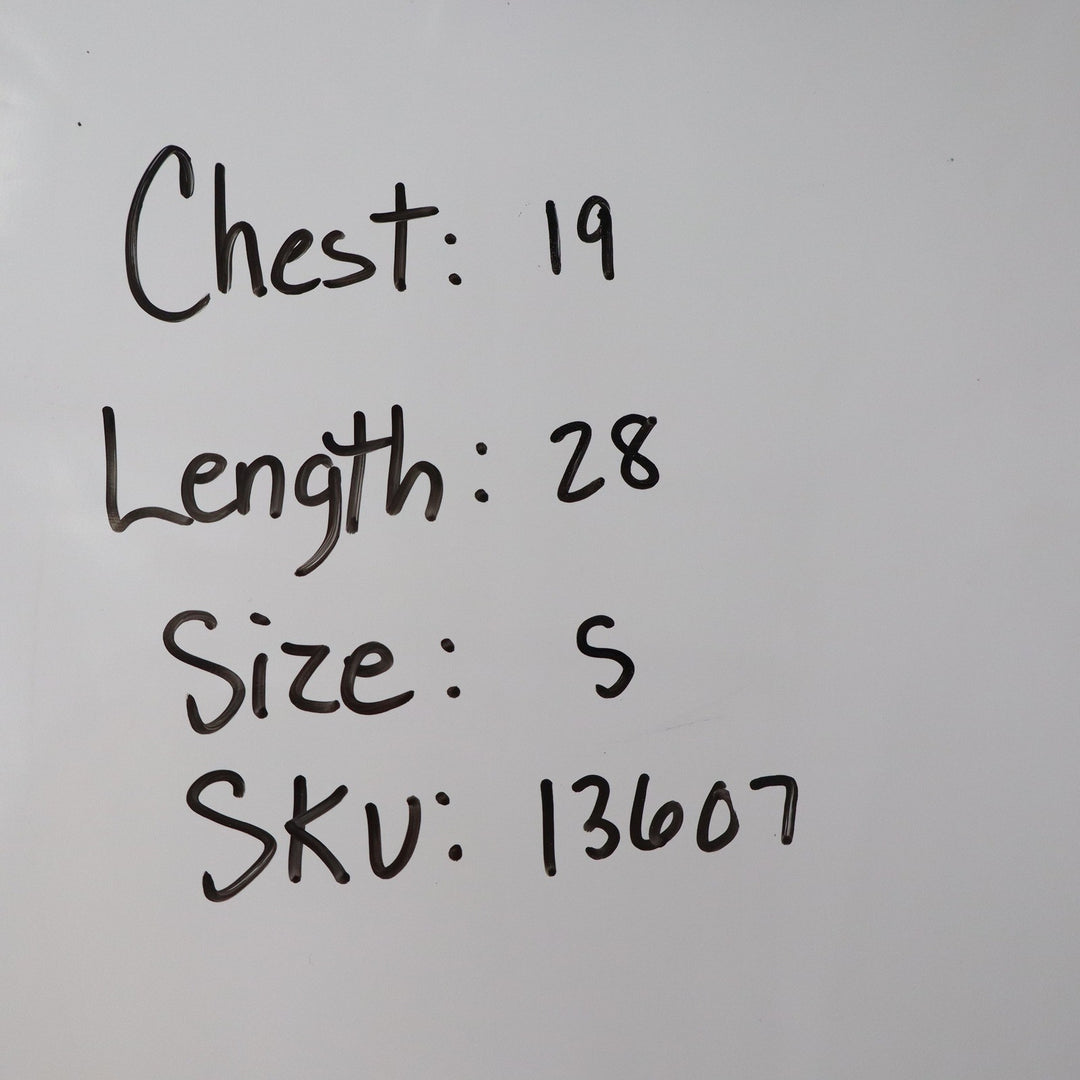 Chest: 19
Length: 28
Size: S
SKU: 13607